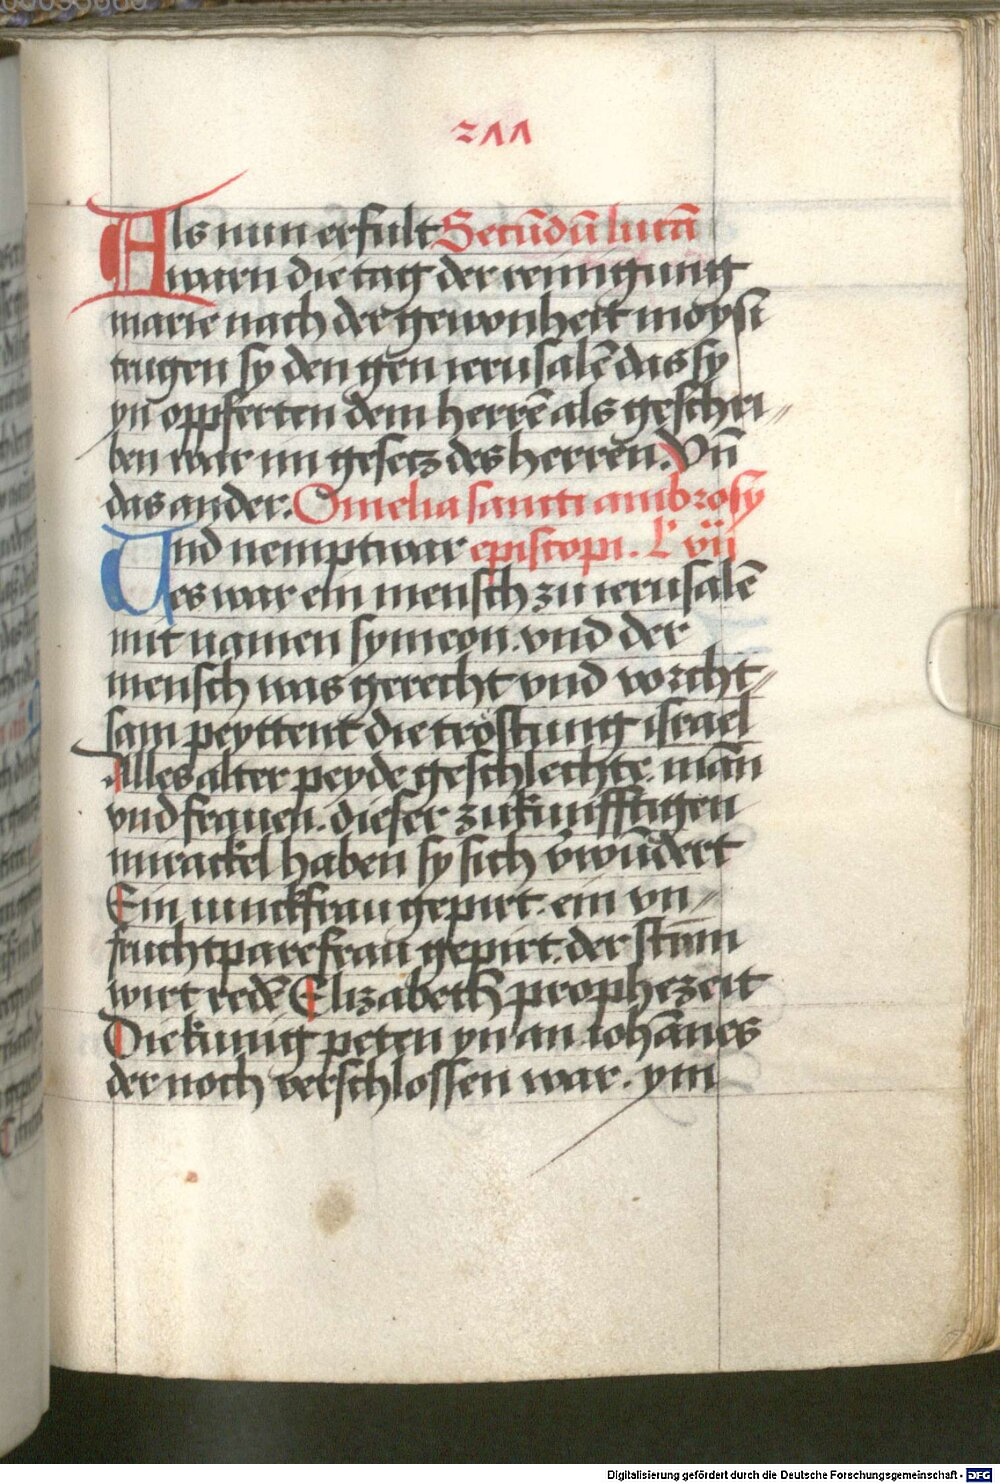 277
Als nun erfult Secūdū lucā
warn die tag der reinigung
marie nach der gewonheit moysi
trugen sy den gen ierusalē das sy
yn oppferten dem herrē als geschri〃
ben war im gesetz des herren. Vn̄
das ander. Omelia sancti ambrosy
Und nempt war episcopi. L vij
es war ein mensch zu ierusalē
mit namen symeon. vnd der
mensch was gerecht vnd vorcht〃
sam peyttent die tröstung israel
Alles alter peyde geschlechte. man̄
vnd frauen. dieser zukunfftigen
mirackel haben sy sich v̄wūdert
Ein iunckfrau gepirt. ein vn〃
fruchtpare frau gepirt. der stum
wirt redē Elizabeth prophezeit
Die kunig peten yn an. iohānes
der noch verschlossen war. ym
Digitalisierung gefördert durch die Deutsche Forschungsgemeinschaft - DFG